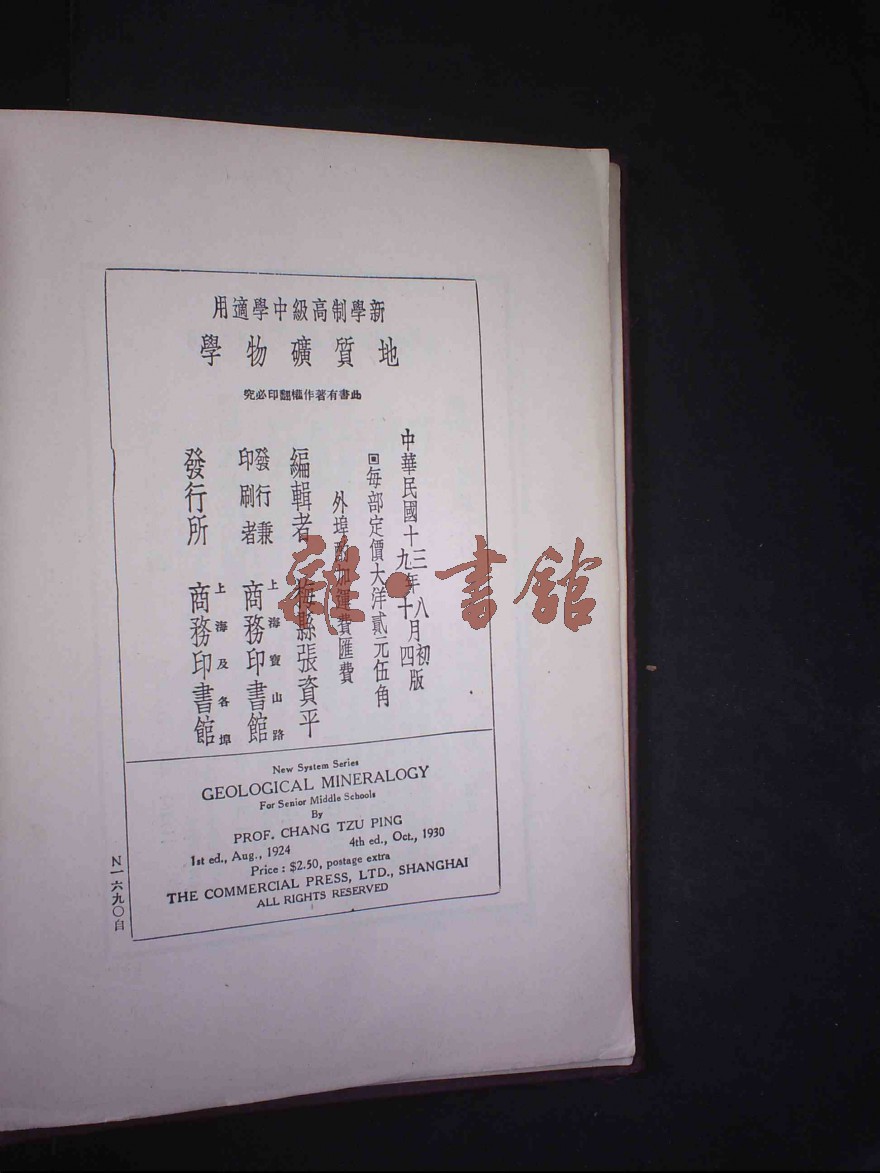 新學制高級中學適用
地質礦物學
此書有著作權翻印必究
中華民國十三年八月初版
十九年十月四版
回每部定價大洋貳元伍角
外埠酌加運費匯費
編輯者 梅縣張資平
發行兼印刷者 上海寶山路 商務印書館
發行所 上海及各埠 商務印書館
New System Series
GEOLOGICAL MINERALOGY
For Senior Middle Schools
By
PROF. CHANG TZU PING
1st ed., Aug., 1924 4th ed., Oct., 1930
Price : $2.50, postage extra
THE COMMERCIAL PRESS, LTD., SHANGHAI
ALL RIGHTS RESERVED
N一六九〇自
雜·書館